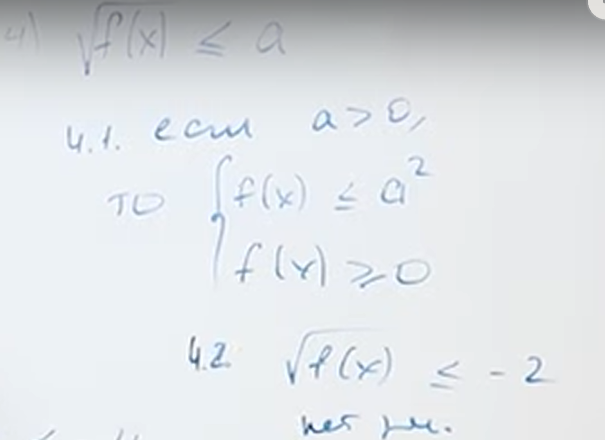 4) √f(x) ≤ a
4.1. если a > 0,
то { f(x) ≤ a²
f(x) ≥ 0
4.2. √f(x) ≤ -2
нет реш.